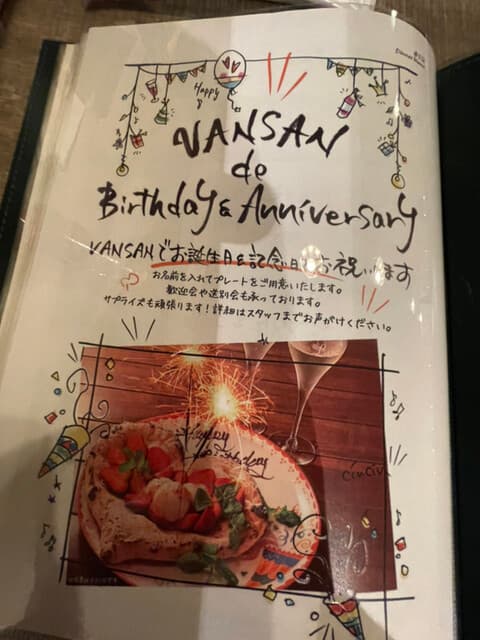 Happy
VANSAN
de
Birthday & Anniversary
VANSANでお誕生日&記念日お祝いします
お名前を入れてプレートをご用意いたします。
歓迎会や送別会も承っております。
サプライズも頑張ります!詳細はスタッフまでお声がけください。
Happy
Birthday
cin cin